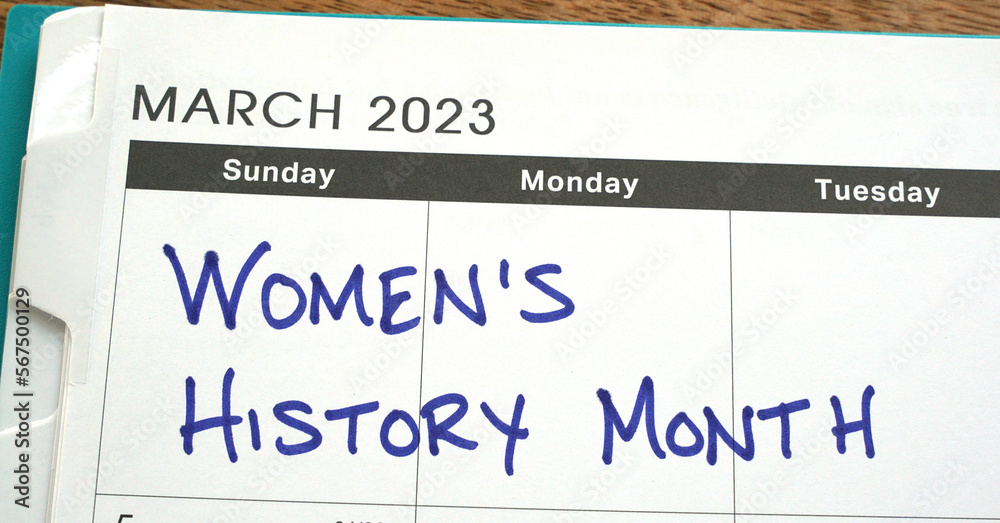 MARCH 2023
Sunday Monday Tuesday
WOMEN'S
HISTORY MONTH
Adobe Stock | #567500129